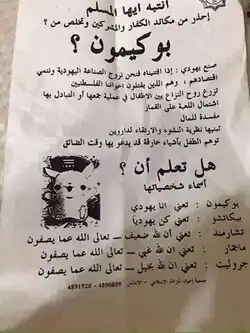 انتبه ايها المسلم
إحذر من مكائد الكفار والمشركين وتخلص من ؟
بوكيمون ؟
صنع يهودي : إذا اقتنيناه فنحن نروج الصناعة اليهودية وننمي
اقتصادهم ، وهم الذين يقتلون اخواننا الفلسطينين
تزرع روح النزاع بين الاطفال في عملية جمعها أو التبادل بها
اشتمال اللعبة على القمار
مفسدة للمال
تبنيها نظرية النشوء والارتقاء لداروين
توهم الطفل بأشياء خارقة قد يدعو بها وقت الضائق
هل تعلم أن ؟
أسماء شخصياتها
بوكيمون : تعني انا يهودي
بيكاتشو : تعني كن يهودياً
تشارمند : تعني أن الله ضعيف ــ تعالى الله عما يصفون
ماجمار : تعني ان الله غبي ــ تعالى الله عما يصفون
جروليت : تعني ان الله بخيل ــ تعالى الله عما يصفون
جمعية إحياء التراث الاسلامي - الأندلس 4890809 - 4891920